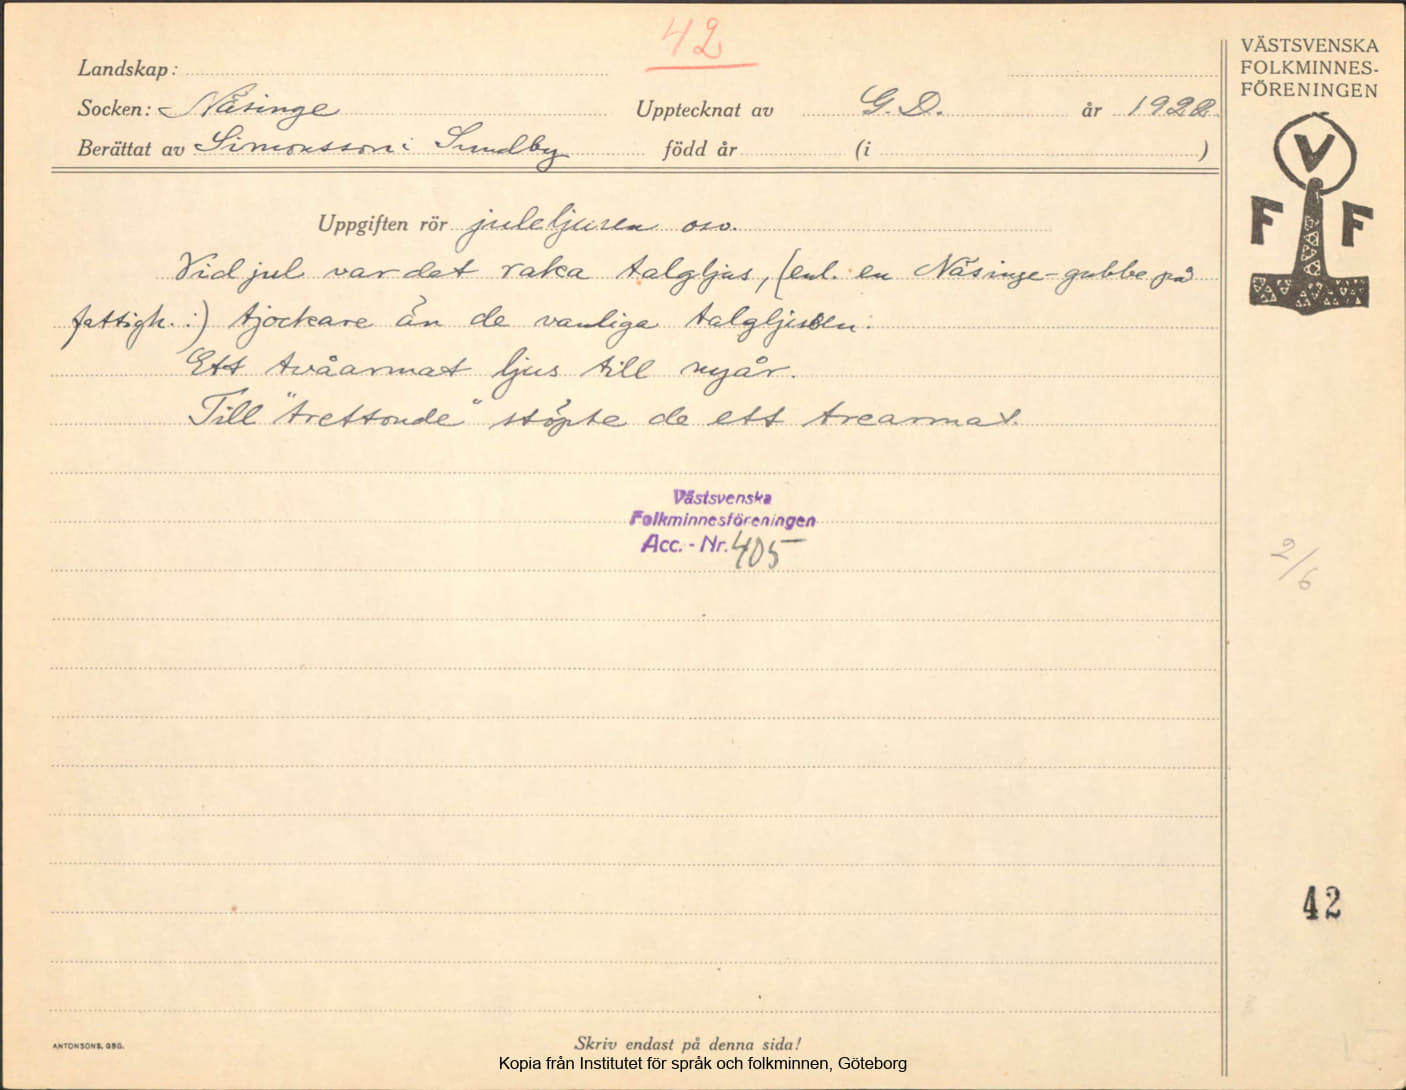 42
Landskap:
Socken: Näsinge Upptecknat av G. D. år 1922.
Berättat av Simonsson i Sundby född år (i )
VÄSTSVENSKA
FOLKMINNES-
FÖRENINGEN
V
F F
Uppgiften rör juleljusen osv.
Vid jul var det raka talgljus, (enl. en Näsinge-gubbe på
fattigh. :) tjockare än de vanliga talgljusen.
Ett tvåarmat ljus till nyår.
Till "trettonde" stöpte de ett trearmat.
Västsvenska
Folkminnesföreningen
Acc. - Nr. 405
2/6
42
ANTONSONS, GBG.
Skriv endast på denna sida!
Kopia från Institutet för språk och folkminnen, Göteborg